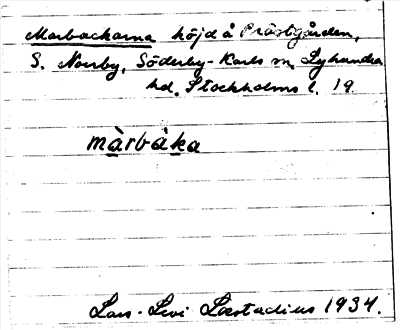 Marbackarna höjd å Prästgården,
S. Norrby, Söderby-Karls sn, Lyhundra
hd, Stockholms l. 19.
màrbàka
Lars-Levi Læstadius 1934.